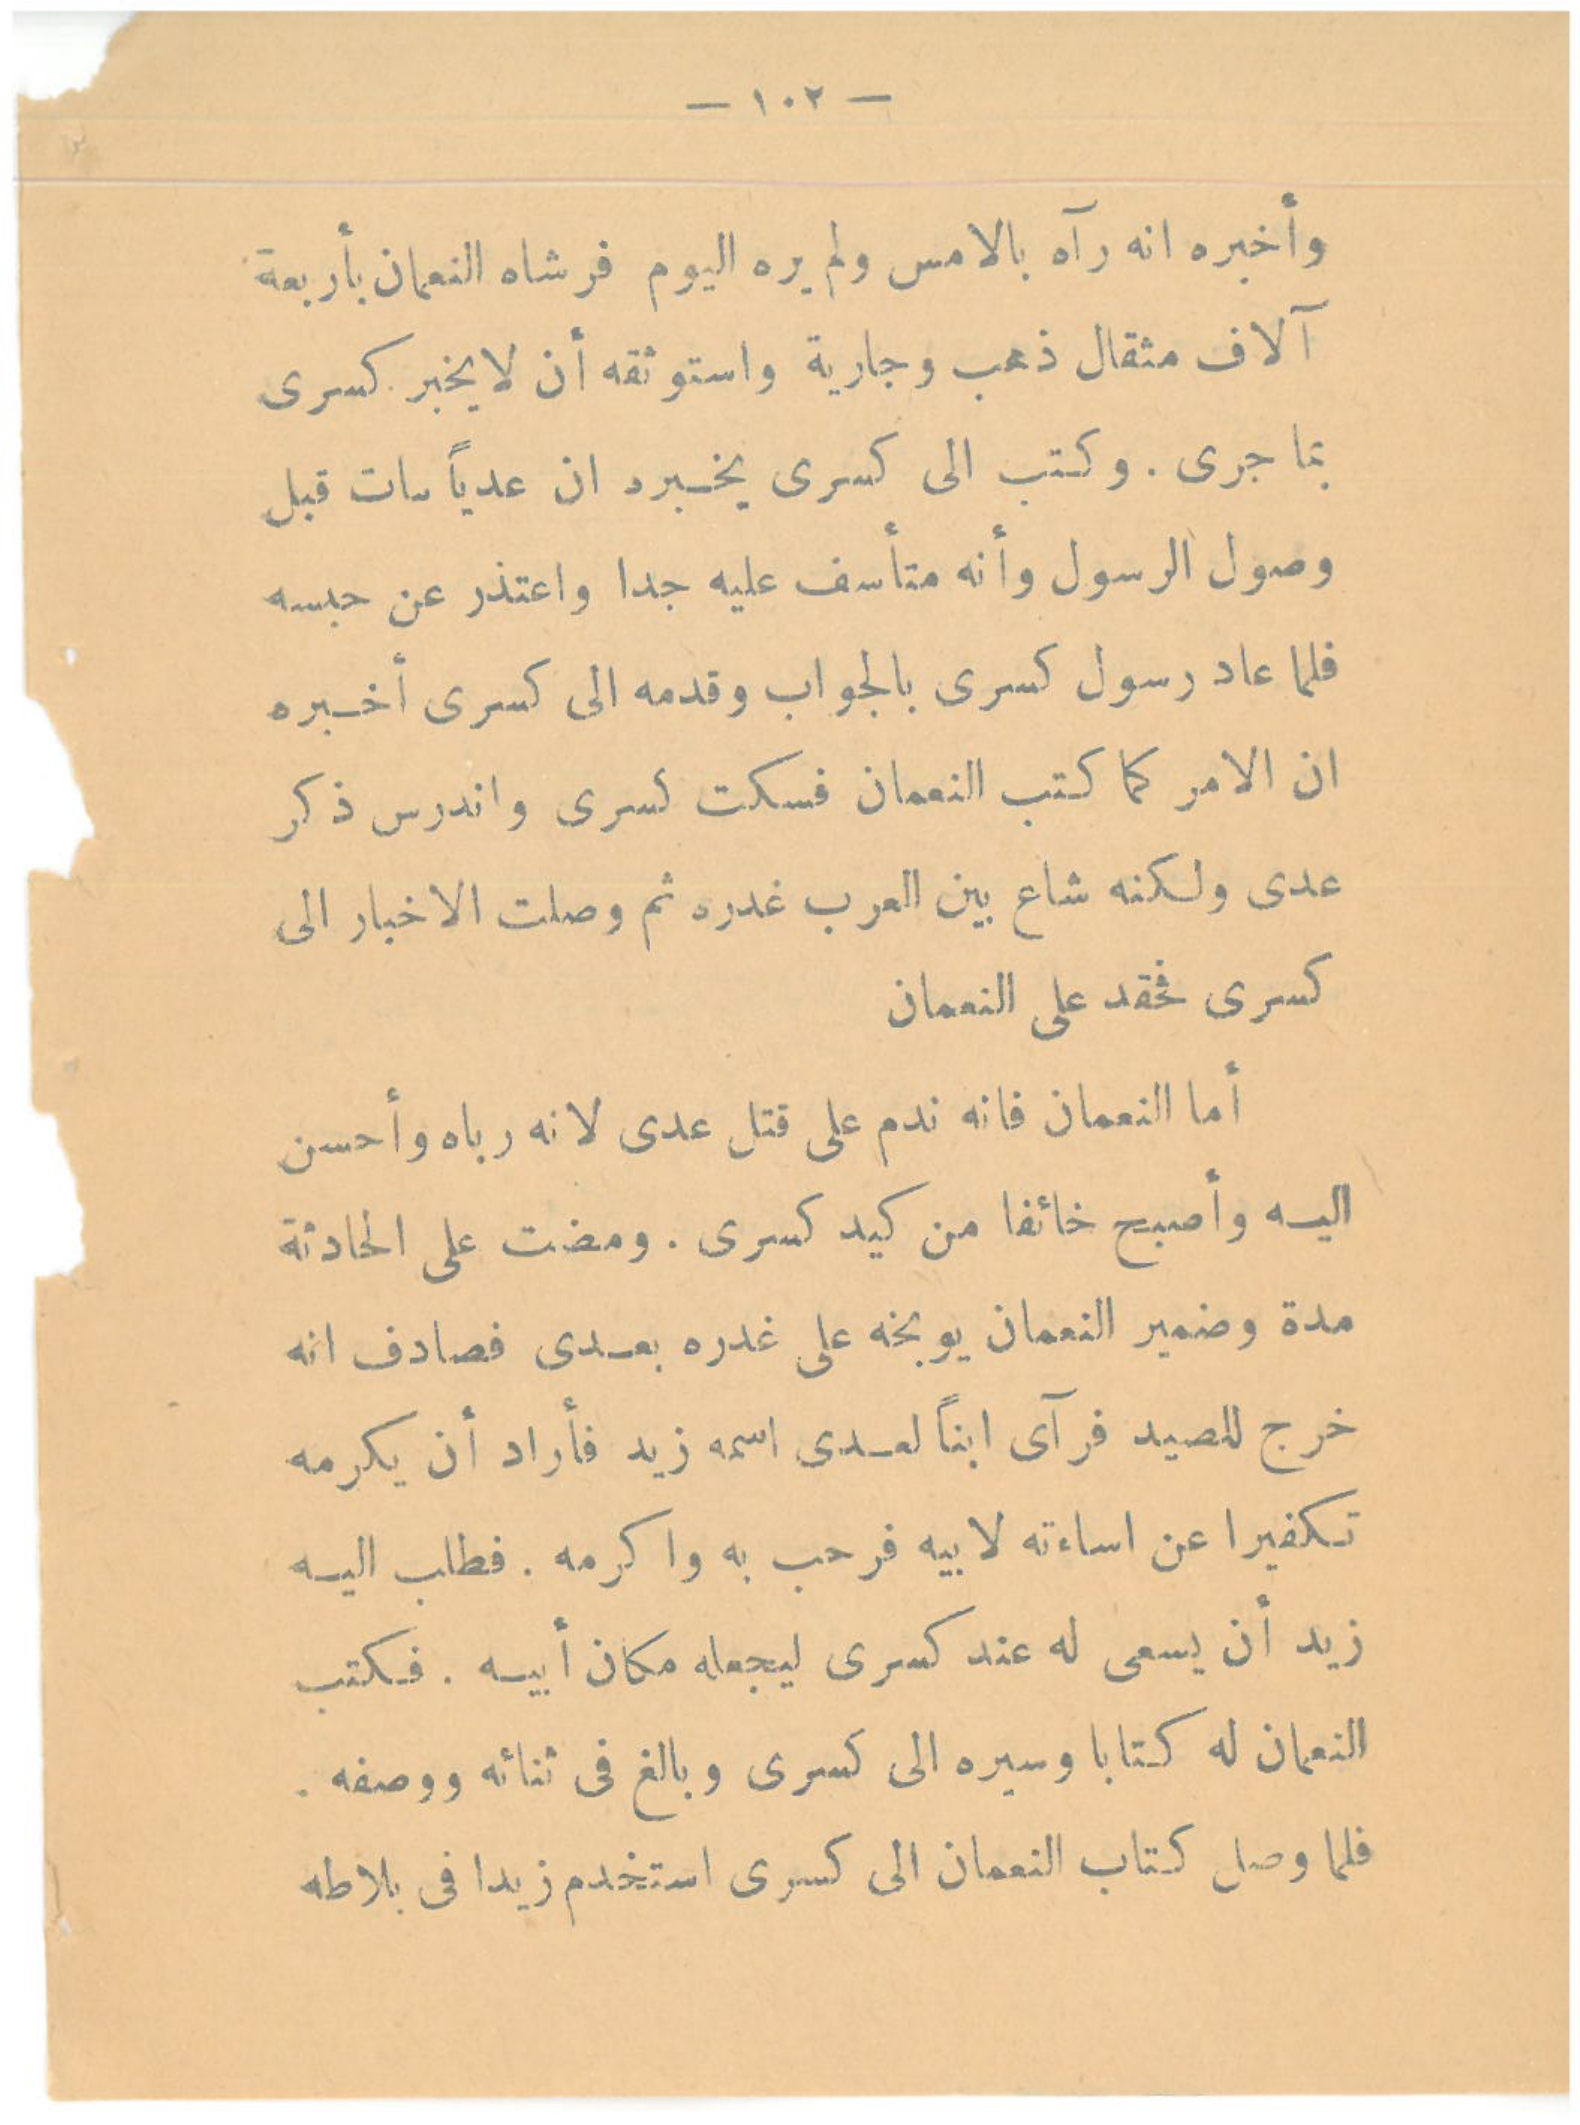 — ١٠٢ —
وأخبره انه رآه بالامس ولم يره اليوم فرشاه النعمان بأربعة
آلاف مثقال ذهب وجارية واستوثقه أن لا يخبر كسرى
بما جرى . وكتب الى كسرى يخبره ان عدياً مات قبل
وصول الرسول وأنه متأسف عليه جدا واعتذر عن حبسه
فلما عاد رسول كسرى بالجواب وقدمه الى كسرى أخبره
ان الامر كما كتب النعمان فسكت كسرى واندرس ذكر
عدى ولكنه شاع بين العرب غدره ثم وصلت الاخبار الى
كسرى فحقد على النعمان
أما النعمان فانه ندم على قتل عدى لانه رباه وأحسن
اليه وأصبح خائفا من كيد كسرى . ومضت على الحادثة
مدة وضمير النعمان يوبخه على غدره بعدى فصادف انه
خرج للصيد فرآى ابناً لعدى اسمه زيد فأراد أن يكرمه
تكفيرا عن اساءته لابيه فرحب به واكرمه . فطلب اليه
زيد أن يسعى له عند كسرى ليجعله مكان أبيه . فكتب
النعمان له كتابا وسيره الى كسرى وبالغ فى ثنائه ووصفه .
فلما وصل كتاب النعمان الى كسرى استخدم زيدا فى بلاطه